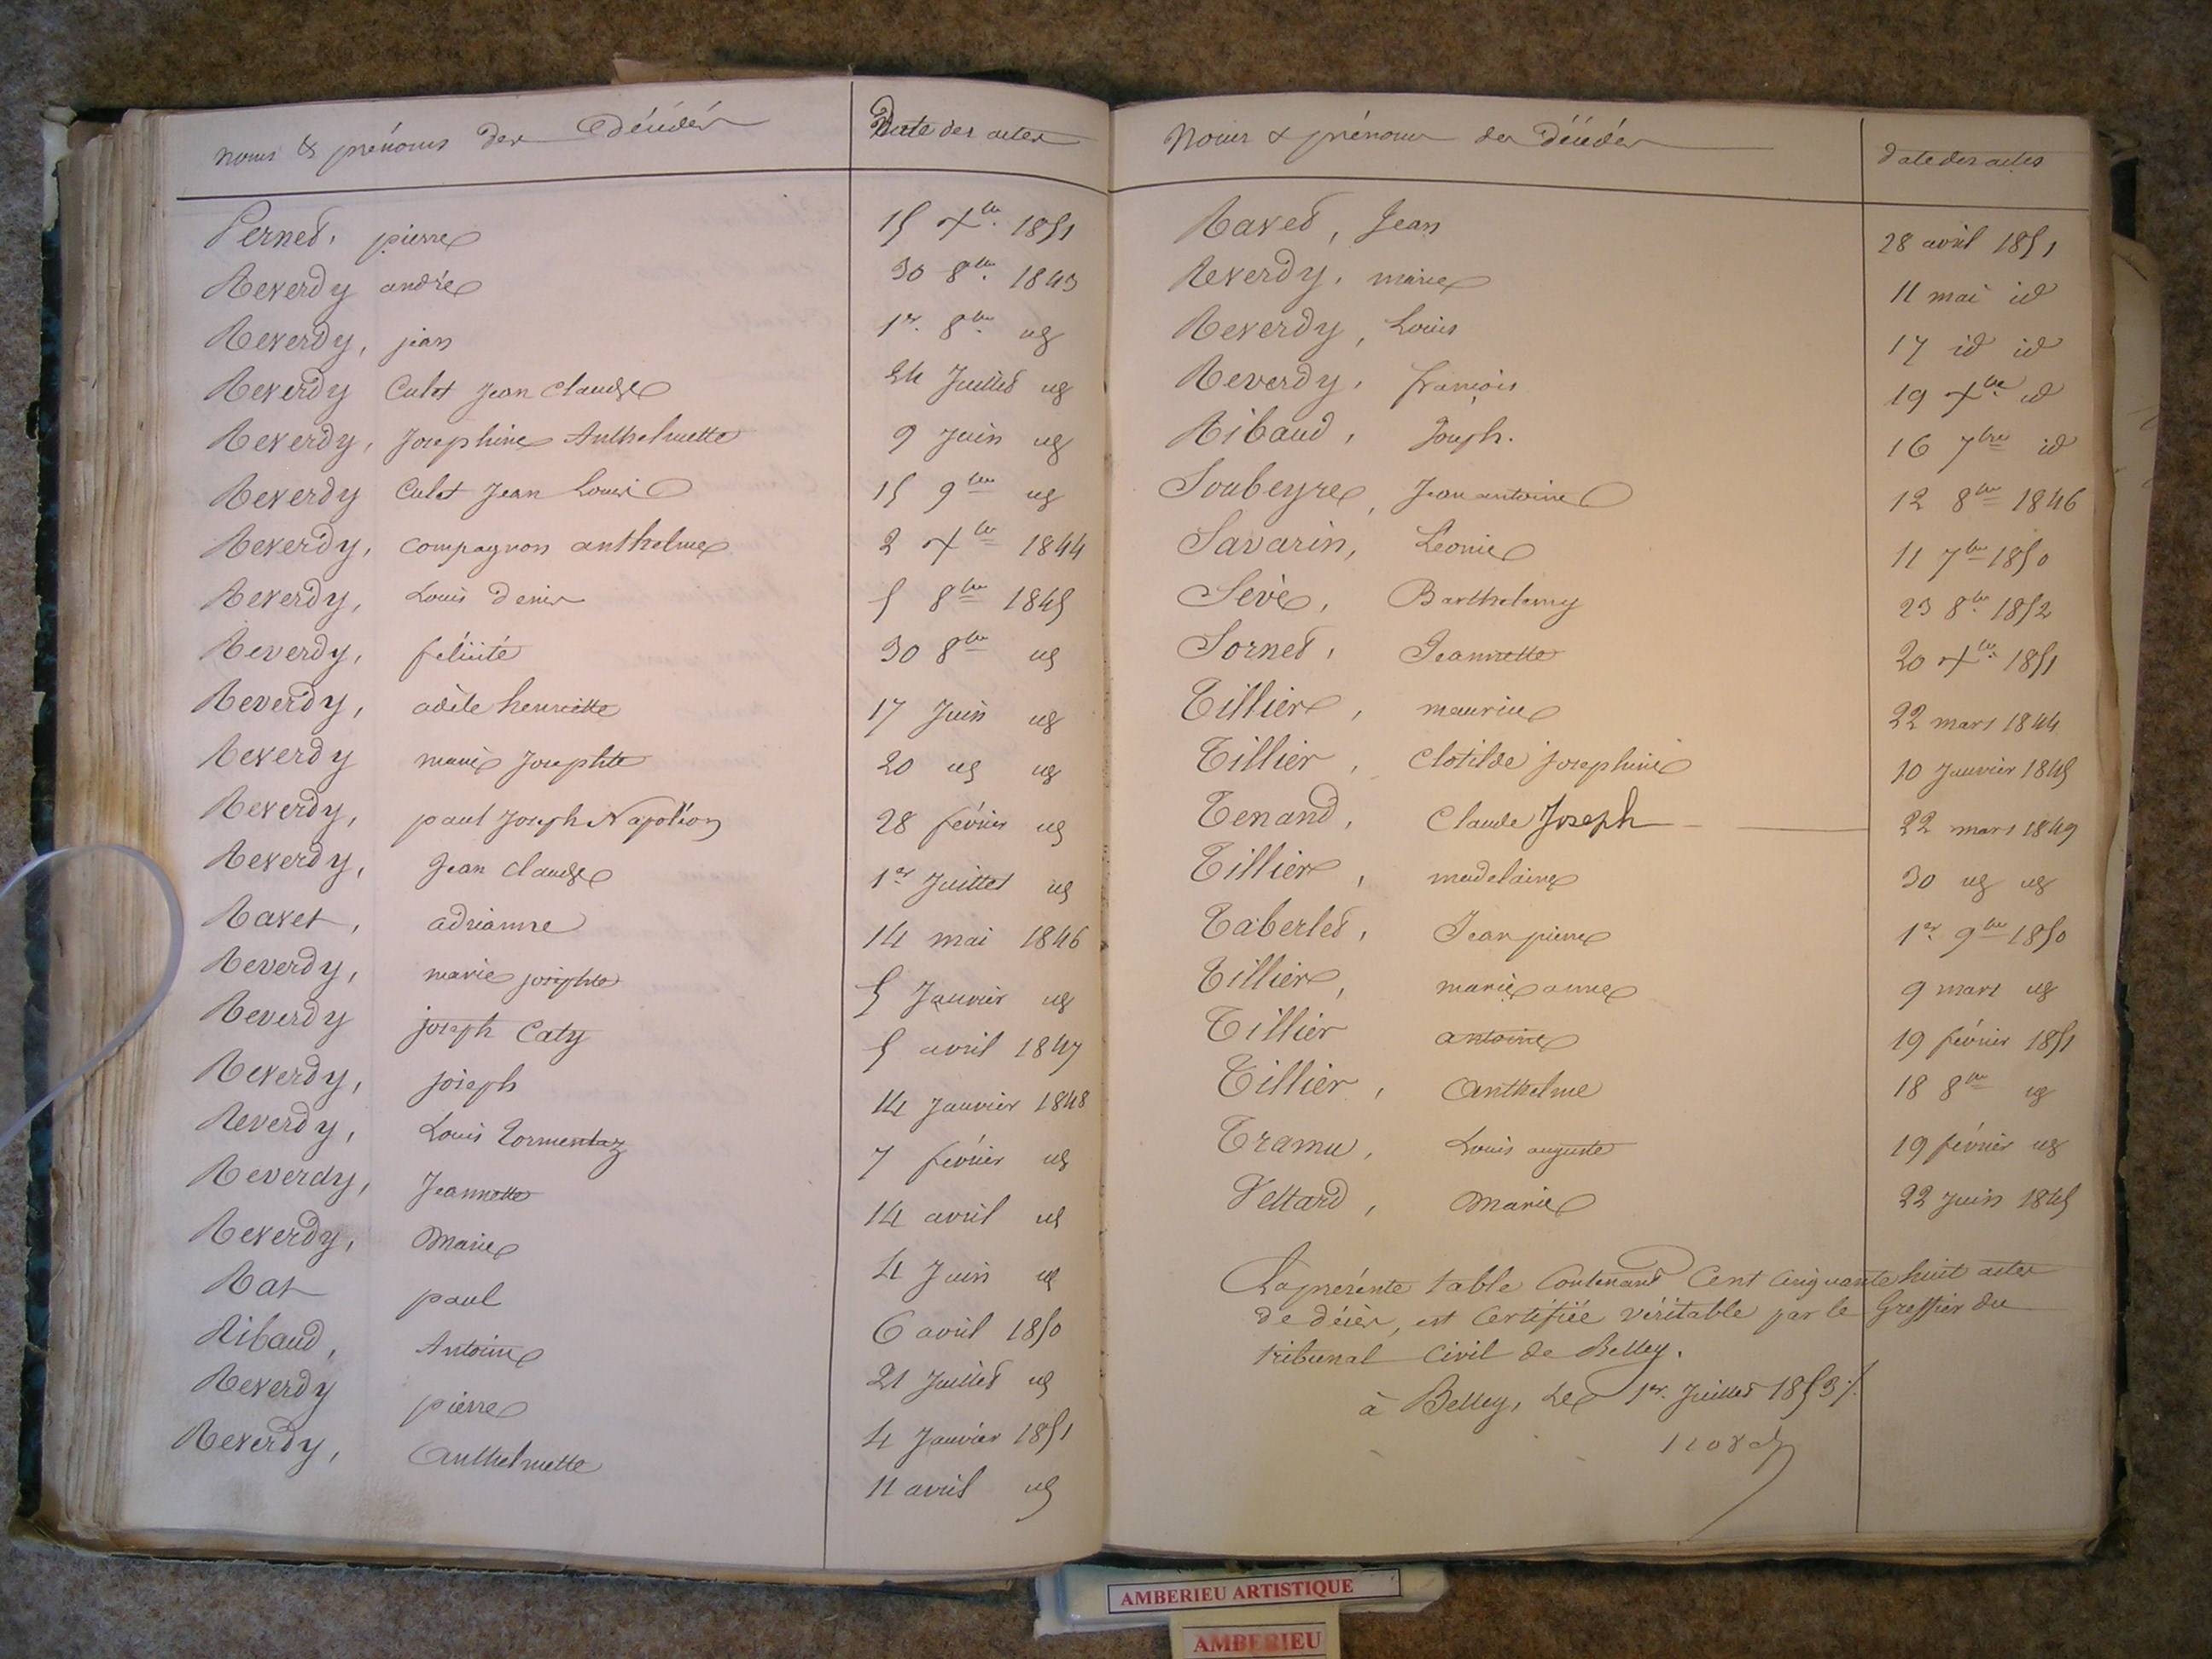 noms & prénoms des Décédés Date des actes
Pernet, pierre 15 Xbre 1851
Reverdy andré 30 8bre 1843
Reverdy, jean 1er 8bre id
Reverdy Culet Jean Claude 24 Juillet id
Reverdy, Josephine Anthelmette 9 Juin id
Reverdy Culet Jean Louis 15 9bre id
Reverdy, compagnon anthelme 2 Xbre 1844
Reverdy, Louis denis 5 8bre 1845
Reverdy, félicité 30 8bre id
Reverdy, adèle henriette 17 Juin id
Reverdy marie Josephte 20 id id
Reverdy, paul Joseph Napoléon 28 février id
Reverdy, Jean claude 1er Juillet id
Ravet, adrianne 14 mai 1846
Reverdy, marie josephte 5 Janvier id
Reverdy joseph Caty 5 avril 1847
Reverdy, joseph 14 Janvier 1848
Reverdy, Louis Tormentaz 7 février id
Reverdy, Jeannette 14 avril id
Reverdy, Marie 4 Juin id
Rat paul 6 avril 1850
Ribaud, Antoine 21 Juillet id
Reverdy pierre 4 Janvier 1851
Reverdy, Anthelmette 11 avril id
Noms & prénoms des Décédés date des actes
Ravet, Jean 28 avril 1851
Reverdy, marie 11 mai id
Reverdy, Louis 17 id id
Reverdy, françois 19 Xbre id
Ribaud, Joseph. 16 7bre id
Soubeyre, Jean antoine 12 8bre 1846
Savarin, Léonie 11 7bre 1850
Sève, Barthelemy 23 8bre 1852
Sornet, Jeannette 20 Xbre 1851
Tillier, maurice 22 mars 1844
Tillier, Clotilde josephine 10 Janvier 1845
Tenand, Claude Joseph 22 mars 1849
Tillier, madelaine 30 id id
Taberlet, Jean pierre 1er 9bre 1850
Tillier, marie anne 9 mars id
Tillier antoine 19 février 1851
Tillier, Anthelme 18 8bre id
Tramu, Louis auguste 19 février id
Vettard, Marie 22 Juin 1845
La présente table Contenant Cent Cinquante huit actes
de décès, est Certifiée véritable par le Greffier du
tribunal Civil de Belley.
à Belley, Le 1er Juillet 1853 ./.
AMBERIEU ARTISTIQUE
AMBERIEU